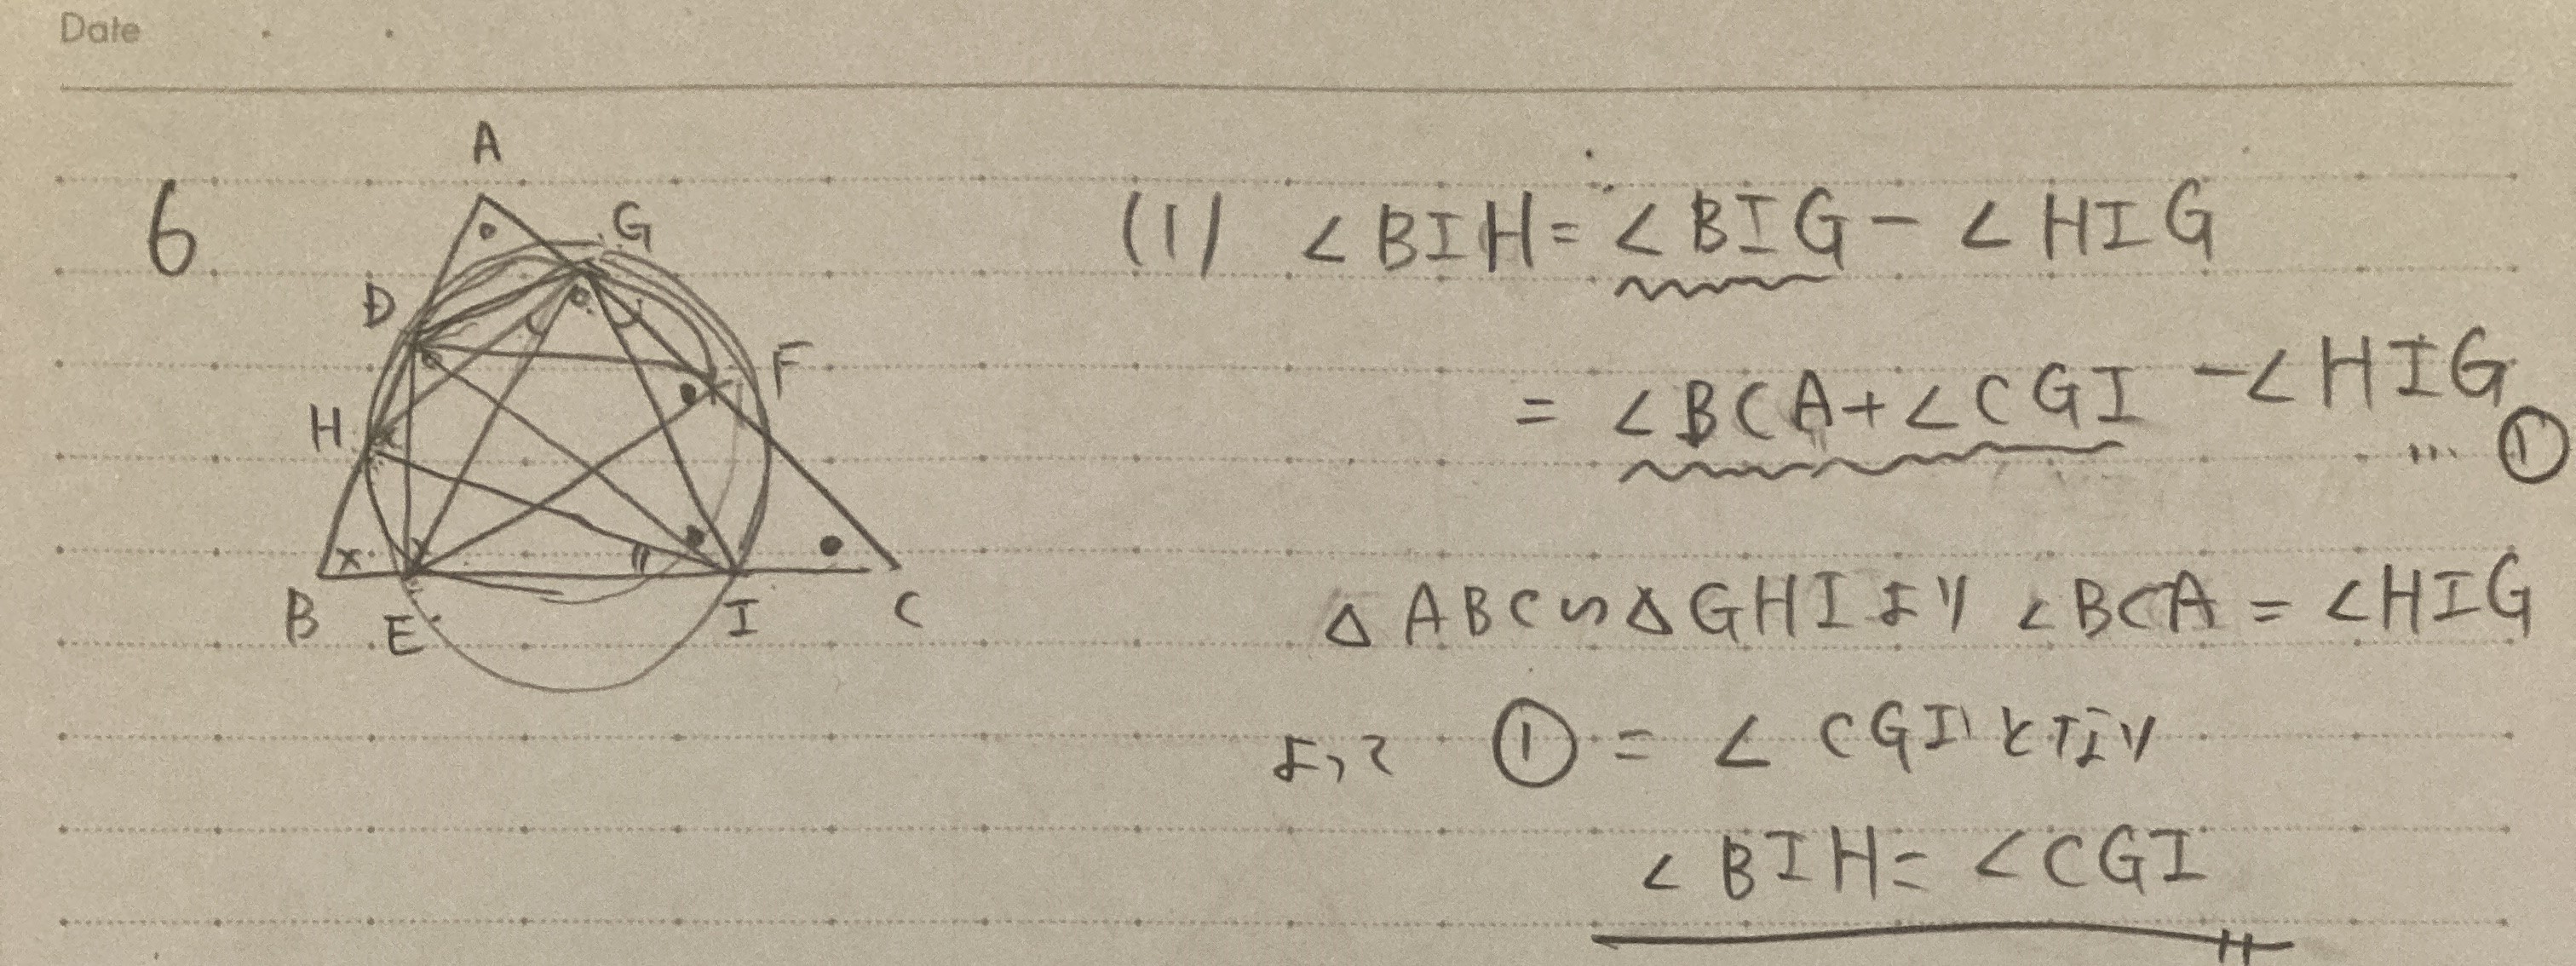 Date
6
A
G
D
F
H
B
E
I
C
(1) ∠BIH = ∠BIG - ∠HIG
= ∠BCA + ∠CGI - ∠HIG … ①
△ABC∽△GHIより ∠BCA = ∠HIG
よって ① = ∠CGIとなり
∠BIH = ∠CGI